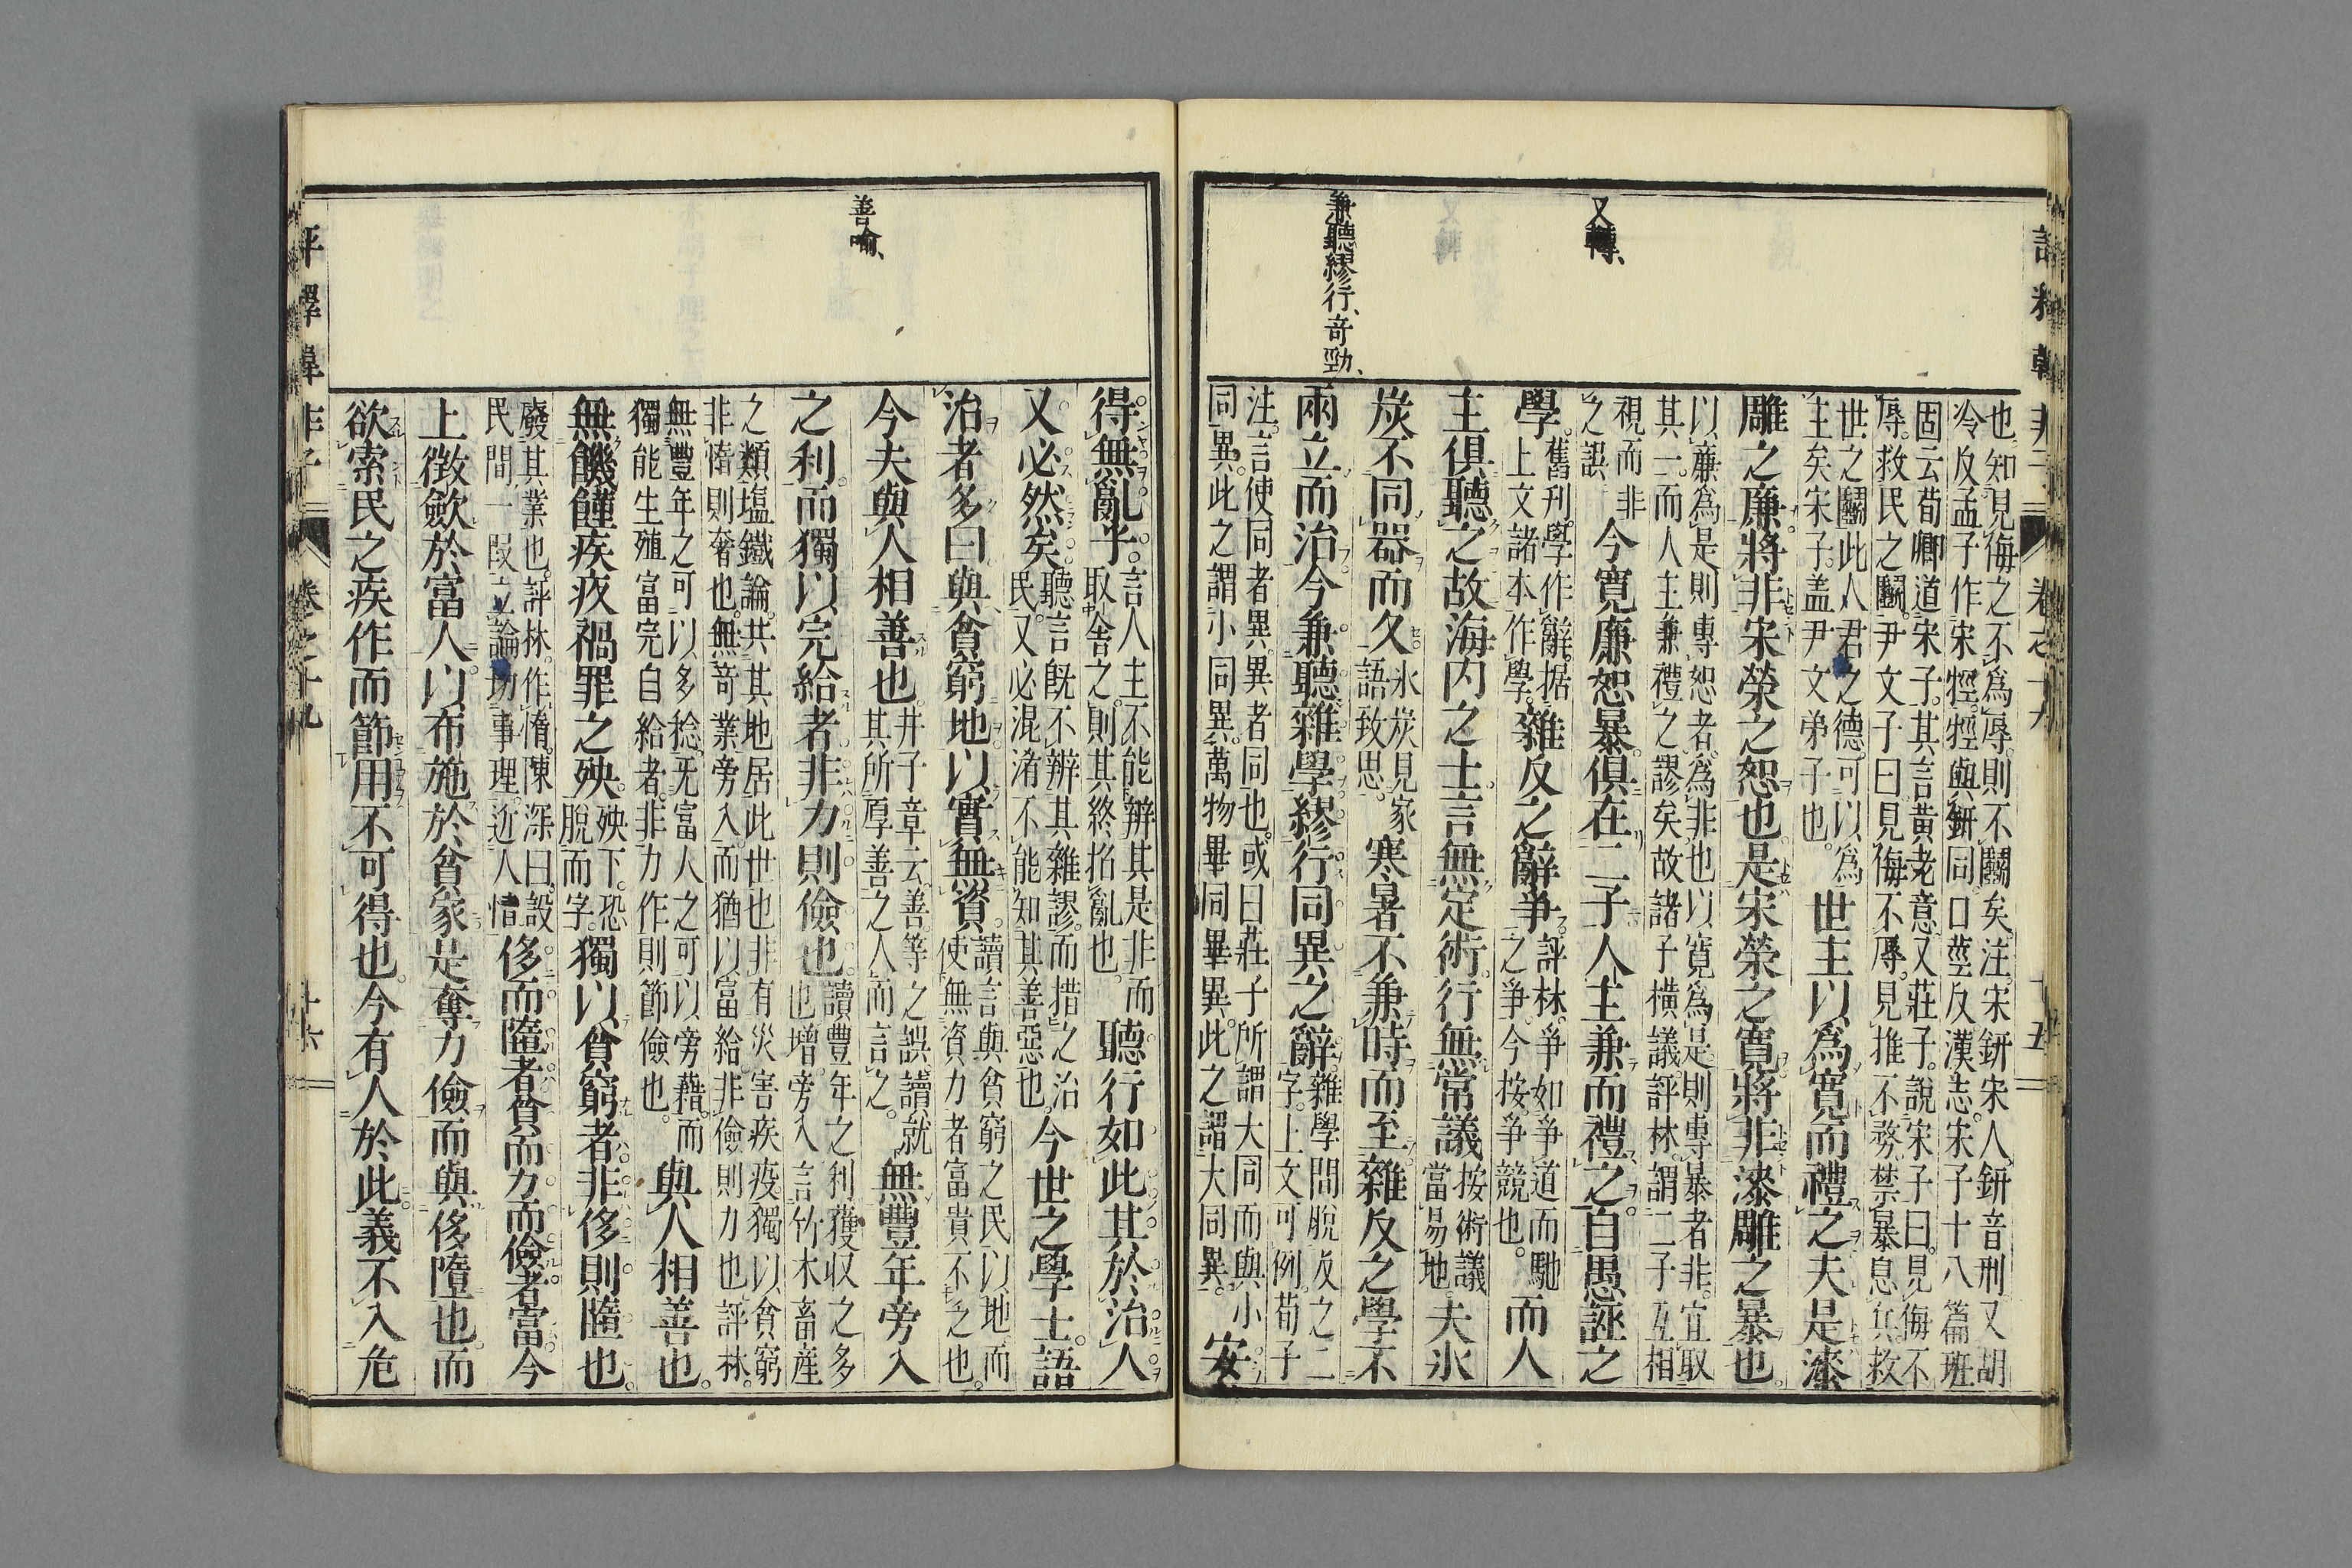 又轉、
兼聽繆行、奇勁、
也知見侮之不爲辱則不鬭矣注宋鈃宋人鈃音刑又胡
冷反孟子作宋牼牼與鈃同口莖反漢志宋子十八篇班
固云荀卿道宋子其言黃老意又莊子說宋子曰見侮不
辱救民之鬭尹文子曰見侮不辱見推不矜禁暴息兵救
世之鬭此人君之德可以爲
主矣宋子蓋尹文弟子也
世主以爲寬而禮之夫是漆
雕之廉將非宋榮之恕也是宋榮之寬將非漆雕之暴也
以廉爲是則專恕者爲非也以寬爲是則專暴者非宜取
其一而人主兼禮之謬矣故諸子橫議評林謂二子互相
視而非
之誤
今寬廉恕暴俱在二子人主兼而禮之自愚誣之
學
舊刋學作辭据
上文諸本作學
雜反之辭爭
評林爭如爭道而馳
之爭今按爭競也
而人
主俱聽之故海内之士言無定術行無常議
按術議
當易地
夫氷
炭不同器而久
氷炭見家
語致思
寒暑不兼時而至雜反之學不
兩立而治今兼聽雜學繆行同異之辭
雜學問脫反之二
字上文可例荀子
注言使同者異異者同也或曰莊子所謂大同而與小
同異此之謂小同異萬物畢同畢異此之謂大同異
安
得無亂乎
言人主不能辨其是非而
取舍之則其終招亂也
聽行如此其於治人
又必然矣
聽言既不辨其雜謬而措之治
民又必混淆不能知其善惡也
今世之學士語
治者多曰與貧窮地以實無資
讀言與貧窮之民以地而
使無資力者富貴不乏也
今夫與人相善也
井子章云善等之誤讀就
其所厚善之人而言之
無豐年旁入
之利而獨以完給者非力則儉也
讀豐年之利獲収之多
也增旁入言竹木畜産
之類塩鐵論共其地居此世也非有災害疾疫獨以貧窮
非惰則奢也無竒業旁入而猶以富給非儉則力也評林
無豐年之可以多稔无富人之可以旁藉而
獨能生殖富完自給者非力作則節儉也
與人相善也
無饑饉疾疚禍罪之殃
殃下恐
脫而字
獨以貧窮者非侈則隨也
廢其業也評林作惰陳深曰設
民間一叚立論切事理近人情
侈而隨者貧而力而儉者當今
上徴歛於富人以布施於貧家是奪力儉而與侈墮也而
欲索民之疾作而節用不可得也今有人於此義不入危
善喻、
評釋韓非子
卷之十九
十六